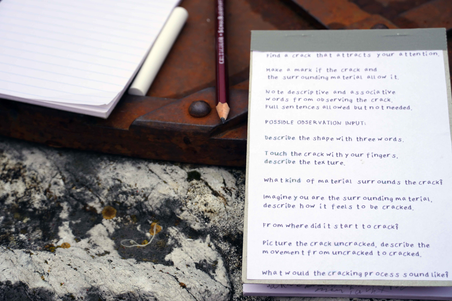 Find a crack that attracts your attention.
Make a mark if the crack and
the surrounding material allow it.
Note descriptive and associative
words from observing the crack.
Full sentences allowed but not needed.
POSSIBLE OBSERVATION INPUT:
Describe the shape with three words.
Touch the crack with your fingers,
describe the texture.
What kind of material surrounds the crack?
Imagine you are the surrounding material,
describe how it feels to be cracked.
From where did it start to crack?
Picture the crack uncracked, describe the
movement from uncracked to cracked.
What would the cracking process sound like?